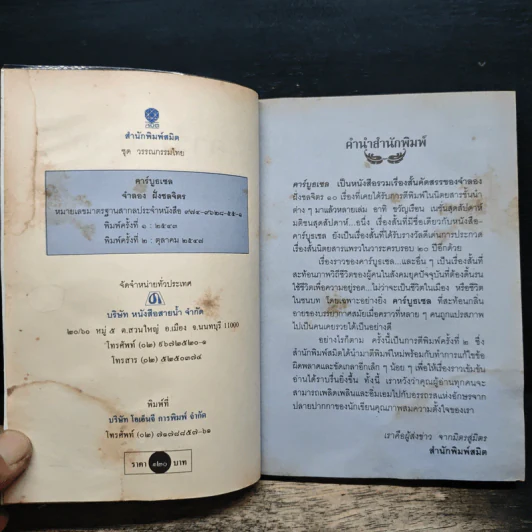 สำนักพิมพ์สมิต
ชุด วรรณกรรมไทย
คาร์บูธเซล
จำลอง ฝั่งชลจิตร
หมายเลขมาตรฐานสากลประจำหนังสือ
พิมพ์ครั้งที่ ๑ : ๒๕๔๓
พิมพ์ครั้งที่ ๒ : ตุลาคม ๒๕๔๗
จัดจำหน่ายทั่วประเทศ
บริษัท หนังสือสายน้ำ จำกัด
๒๐/๖๑ หมู่ ๕ ต.สวนใหญ่ อ.เมือง จ.นนทบุรี 11000
โทรศัพท์ (๐๒)
โทรสาร (๐๒) ๕๒๕๐๓๗๔
พิมพ์ที่
บริษัท โอเอ็นจี การพิมพ์ จำกัด
โทรศัพท์ (๐๒)
ราคา ๑๒๐ บาท
คำนำสำนักพิมพ์
คาร์บูธเซล เป็นหนังสือรวมเรื่องสั้นคัดสรรของจำลอง
ฝั่งชลจิตร ๑๐ เรื่องที่เคยได้รับการตีพิมพ์ในนิตยสารชั้นนำ
ต่าง ๆ มาแล้วหลายเล่ม อาทิ ขวัญเรือน เนชั่นสุดสัปดาห์
มติชนสุดสัปดาห์...อนึ่ง เรื่องสั้นที่มีชื่อเดียวกับหนังสือ-
คาร์บูธเซล ยังเป็นเรื่องสั้นที่ได้รับรางวัลดีเด่นการประกวด
เรื่องสั้นนิตยสารแพรวในวาระครบรอบ ๒๐ ปีอีกด้วย
เรื่องราวของคาร์บูธเซล...และอื่น ๆ เป็นเรื่องสั้นที่
สะท้อนภาพวิถีชีวิตของผู้คนในสังคมยุคปัจจุบันที่ต้องดิ้นรน
ใช้ชีวิตเพื่อความอยู่รอด...ไม่ว่าจะเป็นชีวิตในเมือง หรือชีวิต
ในชนบท โดยเฉพาะอย่างยิ่ง คาร์บูธเซล ที่สะท้อนกลิ่น
อายของบรรยากาศสมัยเมื่อคราวที่หลาย ๆ คนถูกแปรสภาพ
ไปเป็นคนเคยรวยได้เป็นอย่างดี
อย่างไรก็ตาม ครั้งนี้เป็นการตีพิมพ์ครั้งที่ ๒ ซึ่ง
สำนักพิมพ์สมิตได้นำมาตีพิมพ์ใหม่พร้อมกับทำการแก้ไขข้อ
ผิดพลาดและขัดเกลาอีกเล็ก ๆ น้อย ๆ เพื่อให้เรื่องราวเข้มข้น
อ่านได้ราบรื่นยิ่งขึ้น ทั้งนี้ เราหวังว่าคุณผู้อ่านทุกคนจะ
สามารถเพลิดเพลินและอิ่มเอมไปกับอรรถรสแห่งอักษรจาก
ปลายปากกาของนักเขียนคุณภาพสมความตั้งใจของเรา
เราคือผู้ส่งข่าว จากมิตรสู่มิตร
สำนักพิมพ์สมิต